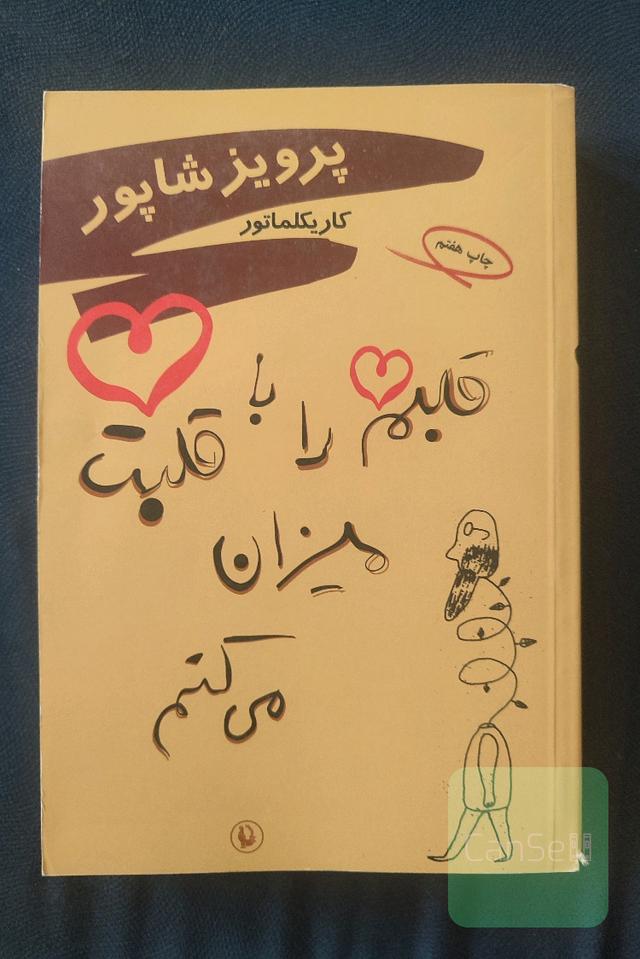 پرویز شاپور
کاریکلماتور
چاپ هفتم
قلبم را با قلبت
میزان
می‌کنم
CanSell